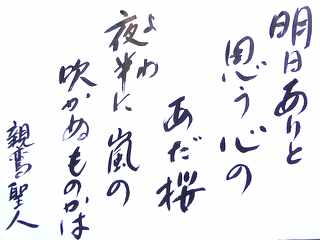 明日ありと
思う心の
あだ桜
夜半に嵐の
よわ
吹かぬものかは
親鸞聖人